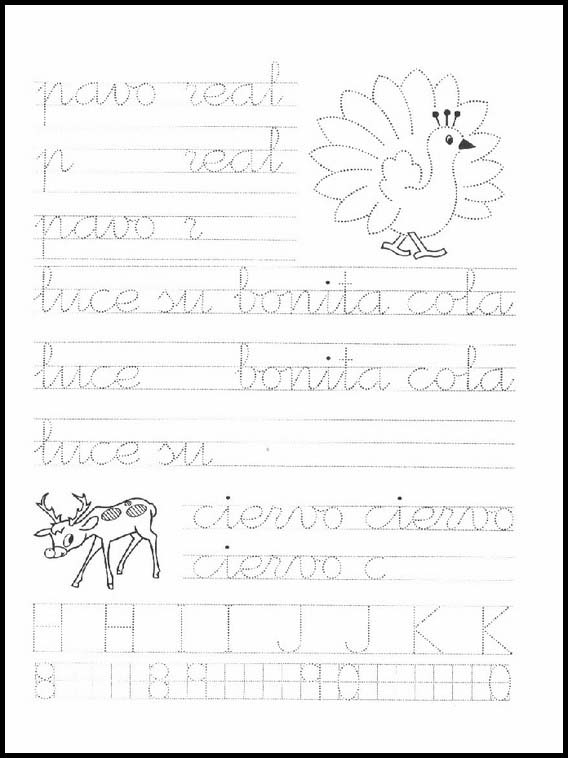 pavo real
p real
pavo r
luce su bonita cola
luce bonita cola
luce su
ciervo ciervo
ciervo c
H H I I J J K K
8 8 9 9 0 0